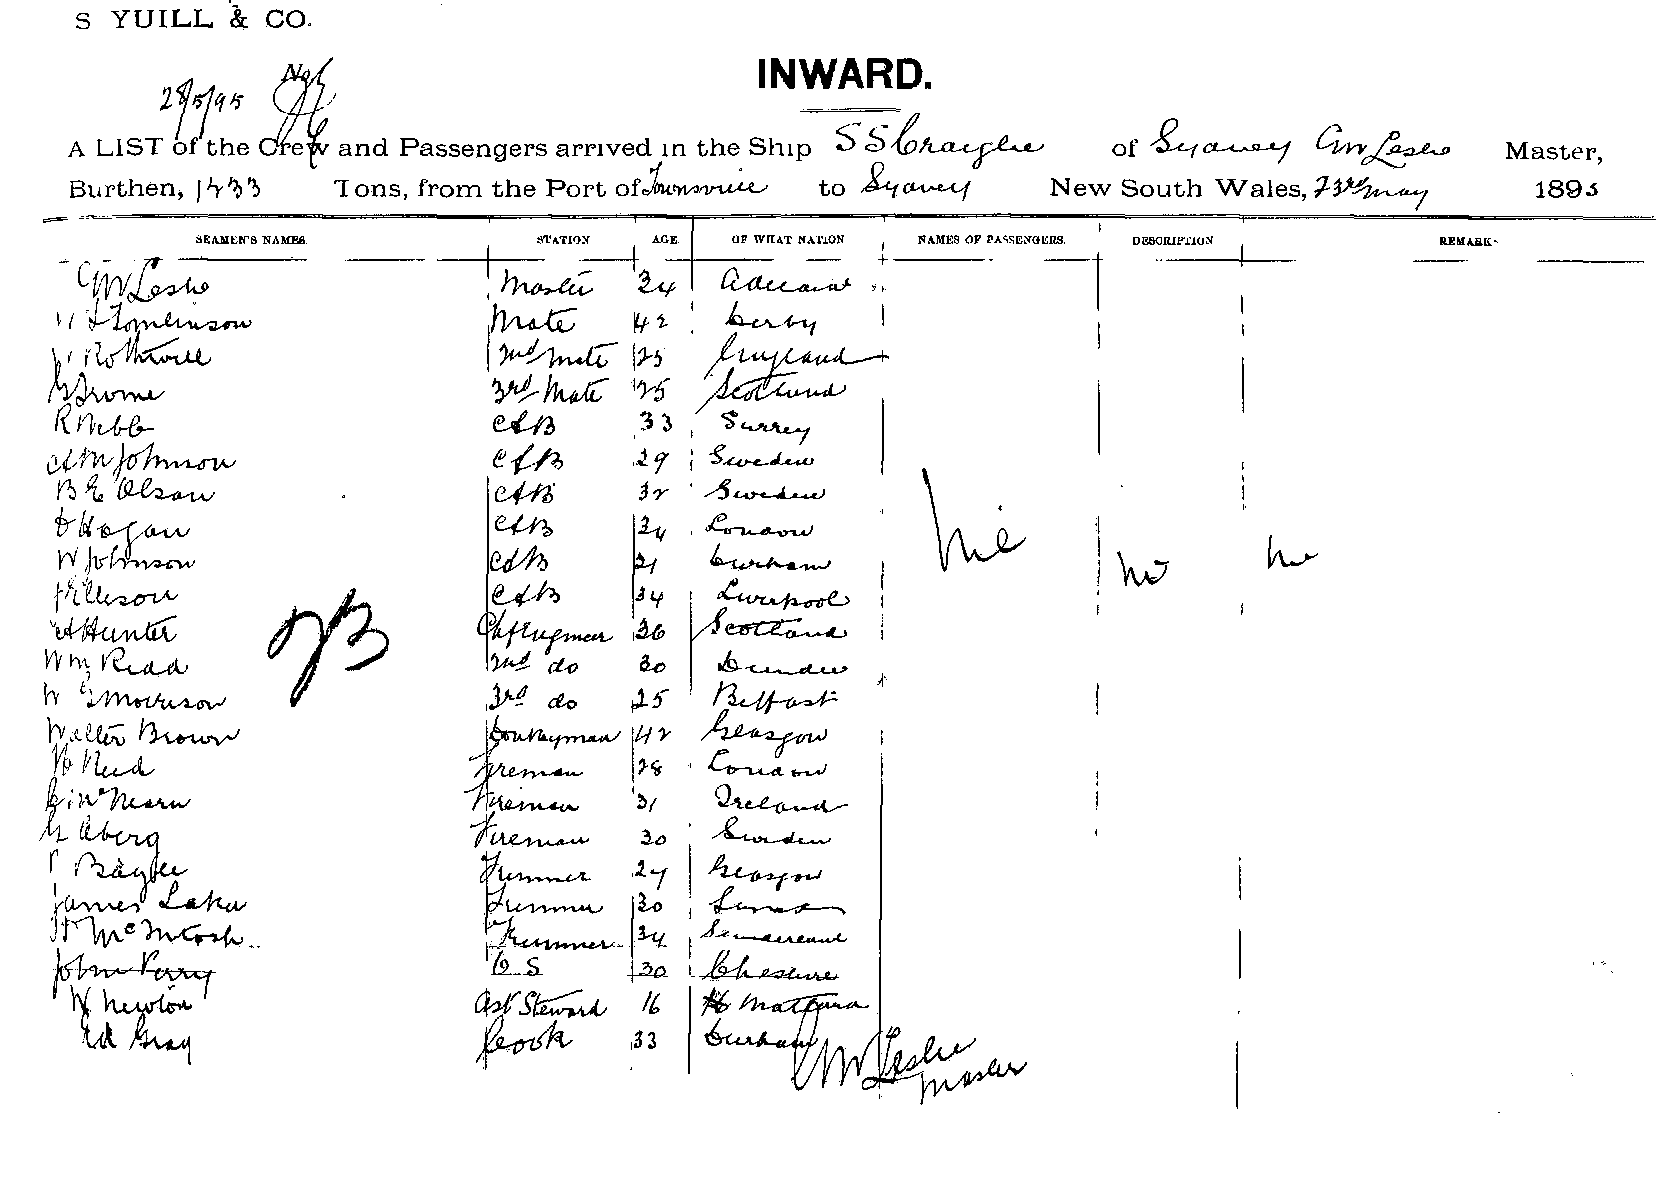 S YUILL & CO.
INWARD.
28/5/95
A LIST of the Crew and Passengers arrived in the Ship SS Craiglee of Sydney CW Leslie Master,
Burthen, 1433 Tons, from the Port of Townsville to Sydney New South Wales, 23rd May 1895
SEAMEN'S NAMES. STATION AGE OF WHAT NATION NAMES OF PASSENGERS. DESCRIPTION REMARKS
CW Leslie Master 34 Adelaide
Tomlinson Mate 42 Derby
Rothwell 2nd Mate 25 England
Frome 3rd Mate 25 Scotland
R Webb AB 33 Surrey
AM Johnson AB 29 Sweden
B E Olson AB 32 Sweden
D Hogan AB 24 London
W Johnson AB 21 Durham
Ellison AB 34 Liverpool
A Hunter Chf Engineer 36 Scotland
Wm Read 2nd do 30 Dundee
W G Morrison 3rd do 25 Belfast
Walter Brown Donkeyman 42 Glasgow
Reid Fireman 28 London
McNearn Fireman 31 Ireland
Aberg Fireman 30 Sweden
Baylee Trimmer 24 Glasgow
James Laker Trimmer 30
McIntosh Trimmer 34 Sunderland
John Perry O S 30 Cheshire
W Newton Ast Steward 16 Maitland
Ed Gray Cook 33 Durham
Nil
CW Leslie
Master